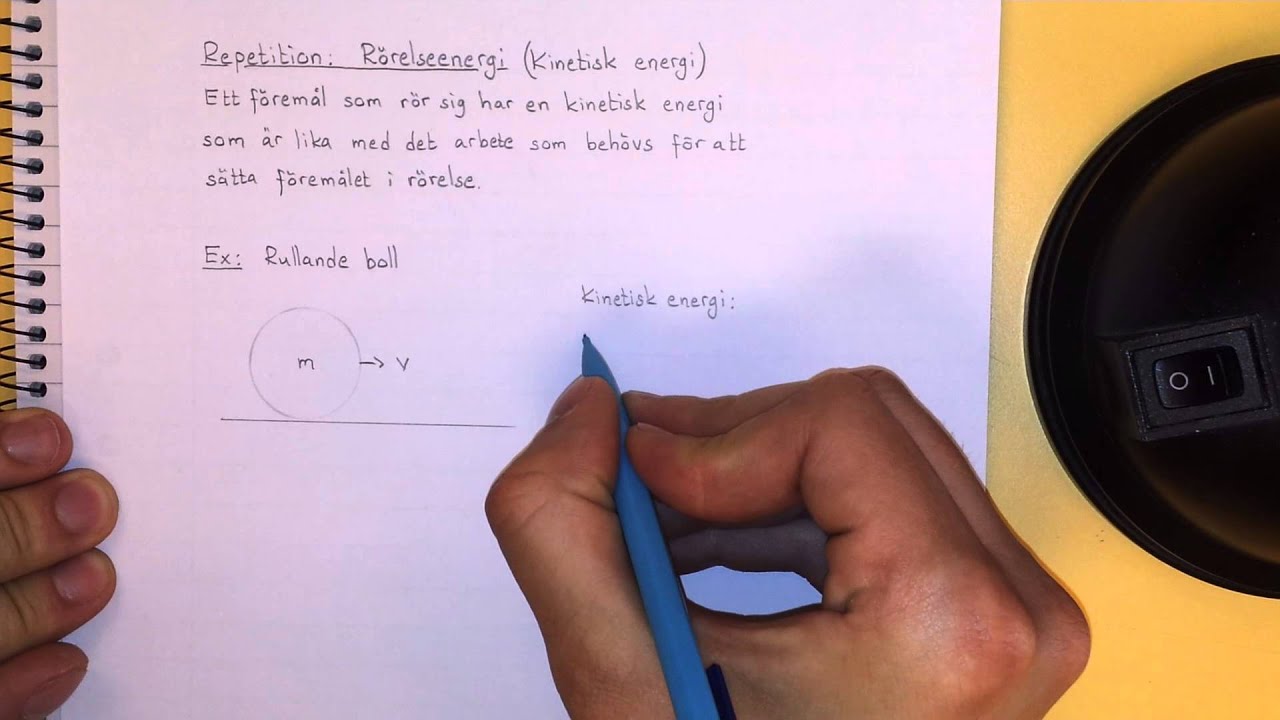 Repetition: Rörelseenergi (Kinetisk energi)
Ett föremål som rör sig har en kinetisk energi
som är lika med det arbete som behövs för att
sätta föremålet i rörelse.
Ex: Rullande boll
Kinetisk energi:
m → v
O I